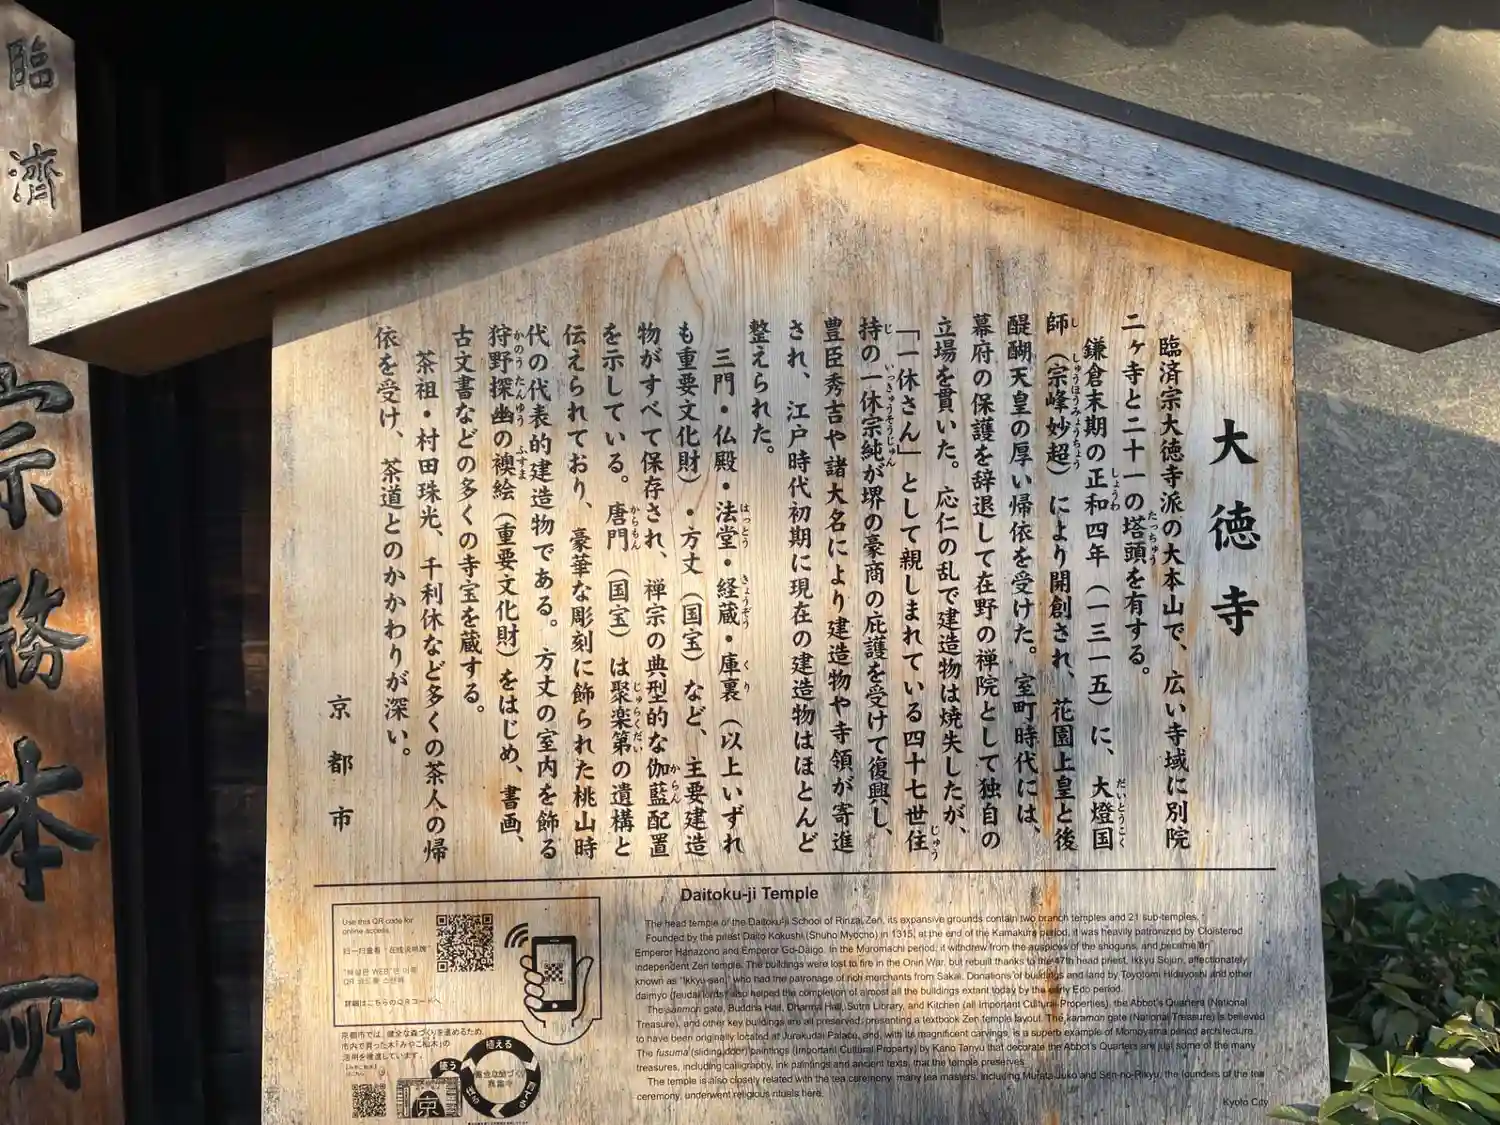 臨済宗務本所
大徳寺
臨済宗大徳寺派の大本山で、広い寺域に別院
二ヶ寺と二十一の塔頭を有する。
鎌倉末期の正和四年（一三一五）に、大燈国
師（宗峰妙超）により開創され、花園上皇と後
醍醐天皇の厚い帰依を受けた。室町時代には、
幕府の保護を辞退して在野の禅院として独自の
立場を貫いた。応仁の乱で建造物は焼失したが、
「一休さん」として親しまれている四十七世住
持の一休宗純が堺の豪商の庇護を受けて復興し、
豊臣秀吉や諸大名により建造物や寺領が寄進
され、江戸時代初期に現在の建造物はほとんど
整えられた。
三門・仏殿・法堂・経蔵・庫裏（以上いずれ
も重要文化財）・方丈（国宝）など、主要建造
物がすべて保存され、禅宗の典型的な伽藍配置
を示している。唐門（国宝）は聚楽第の遺構と
伝えられており、豪華な彫刻に飾られた桃山時
代の代表的建造物である。方丈の室内を飾る
狩野探幽の襖絵（重要文化財）をはじめ、書画、
古文書などの多くの寺宝を蔵する。
茶祖・村田珠光、千利休など多くの茶人の帰
依を受け、茶道とのかかわりが深い。
京都市
Daitoku-ji Temple
The head temple of the Daitoku-ji School of Rinzai Zen, its expansive grounds contain two branch temples and 21 sub-temples.
Founded by the priest Daito Kokushi (Shuho Myocho) in 1315, at the end of the Kamakura period, it was heavily patronized by Cloistered
Emperor Hanazono and Emperor Go-Daigo. In the Muromachi period, it withdrew from the auspices of the shoguns, and became an
independent Zen temple. The buildings were lost to fire in the Onin War, but rebuild thanks to the 47th head priest, Ikkyu Sojun, affectionately
known as "Ikkyu-san," who had the patronage of rich merchants from Sakai. Donations of buildings and land by Toyotomi Hideyoshi and other
daimyo (feudal lords) also helped the completion of almost all the buildings extant today by the early Edo period.
The sanmon gate, Buddha Hall, Dharma Hall, Sutra Library, and Kitchen (all Important Cultural Properties), the Abbot's Quarters (National
Treasure), and other key buildings are all preserved, presenting a textbook Zen temple layout. The karamon gate (National Treasure) is believed
to have been originally located at Jurakudai Palace, and, with its magnificent carvings, is a superb example of Momoyama period architecture.
The fusuma (sliding door) paintings (Important Cultural Property) by Kano Tanyu that decorate the Abbot's Quarters are just some of the many
treasures, including calligraphy, ink paintings and ancient texts, that the temple preserves.
The temple is also closely related with the tea ceremony: many tea masters, including Murata Juko and Sen-no-Rikyu, the founders of the tea
ceremony, underwent religious rituals here.
Kyoto City
Use this QR code for
online access.
詳細はこちらのQRコードへ
京都市では、健全な森づくりを進めるため、
市内で育った木「みやこ杣木」の
活用を推進しています。
植える
育てる
使う